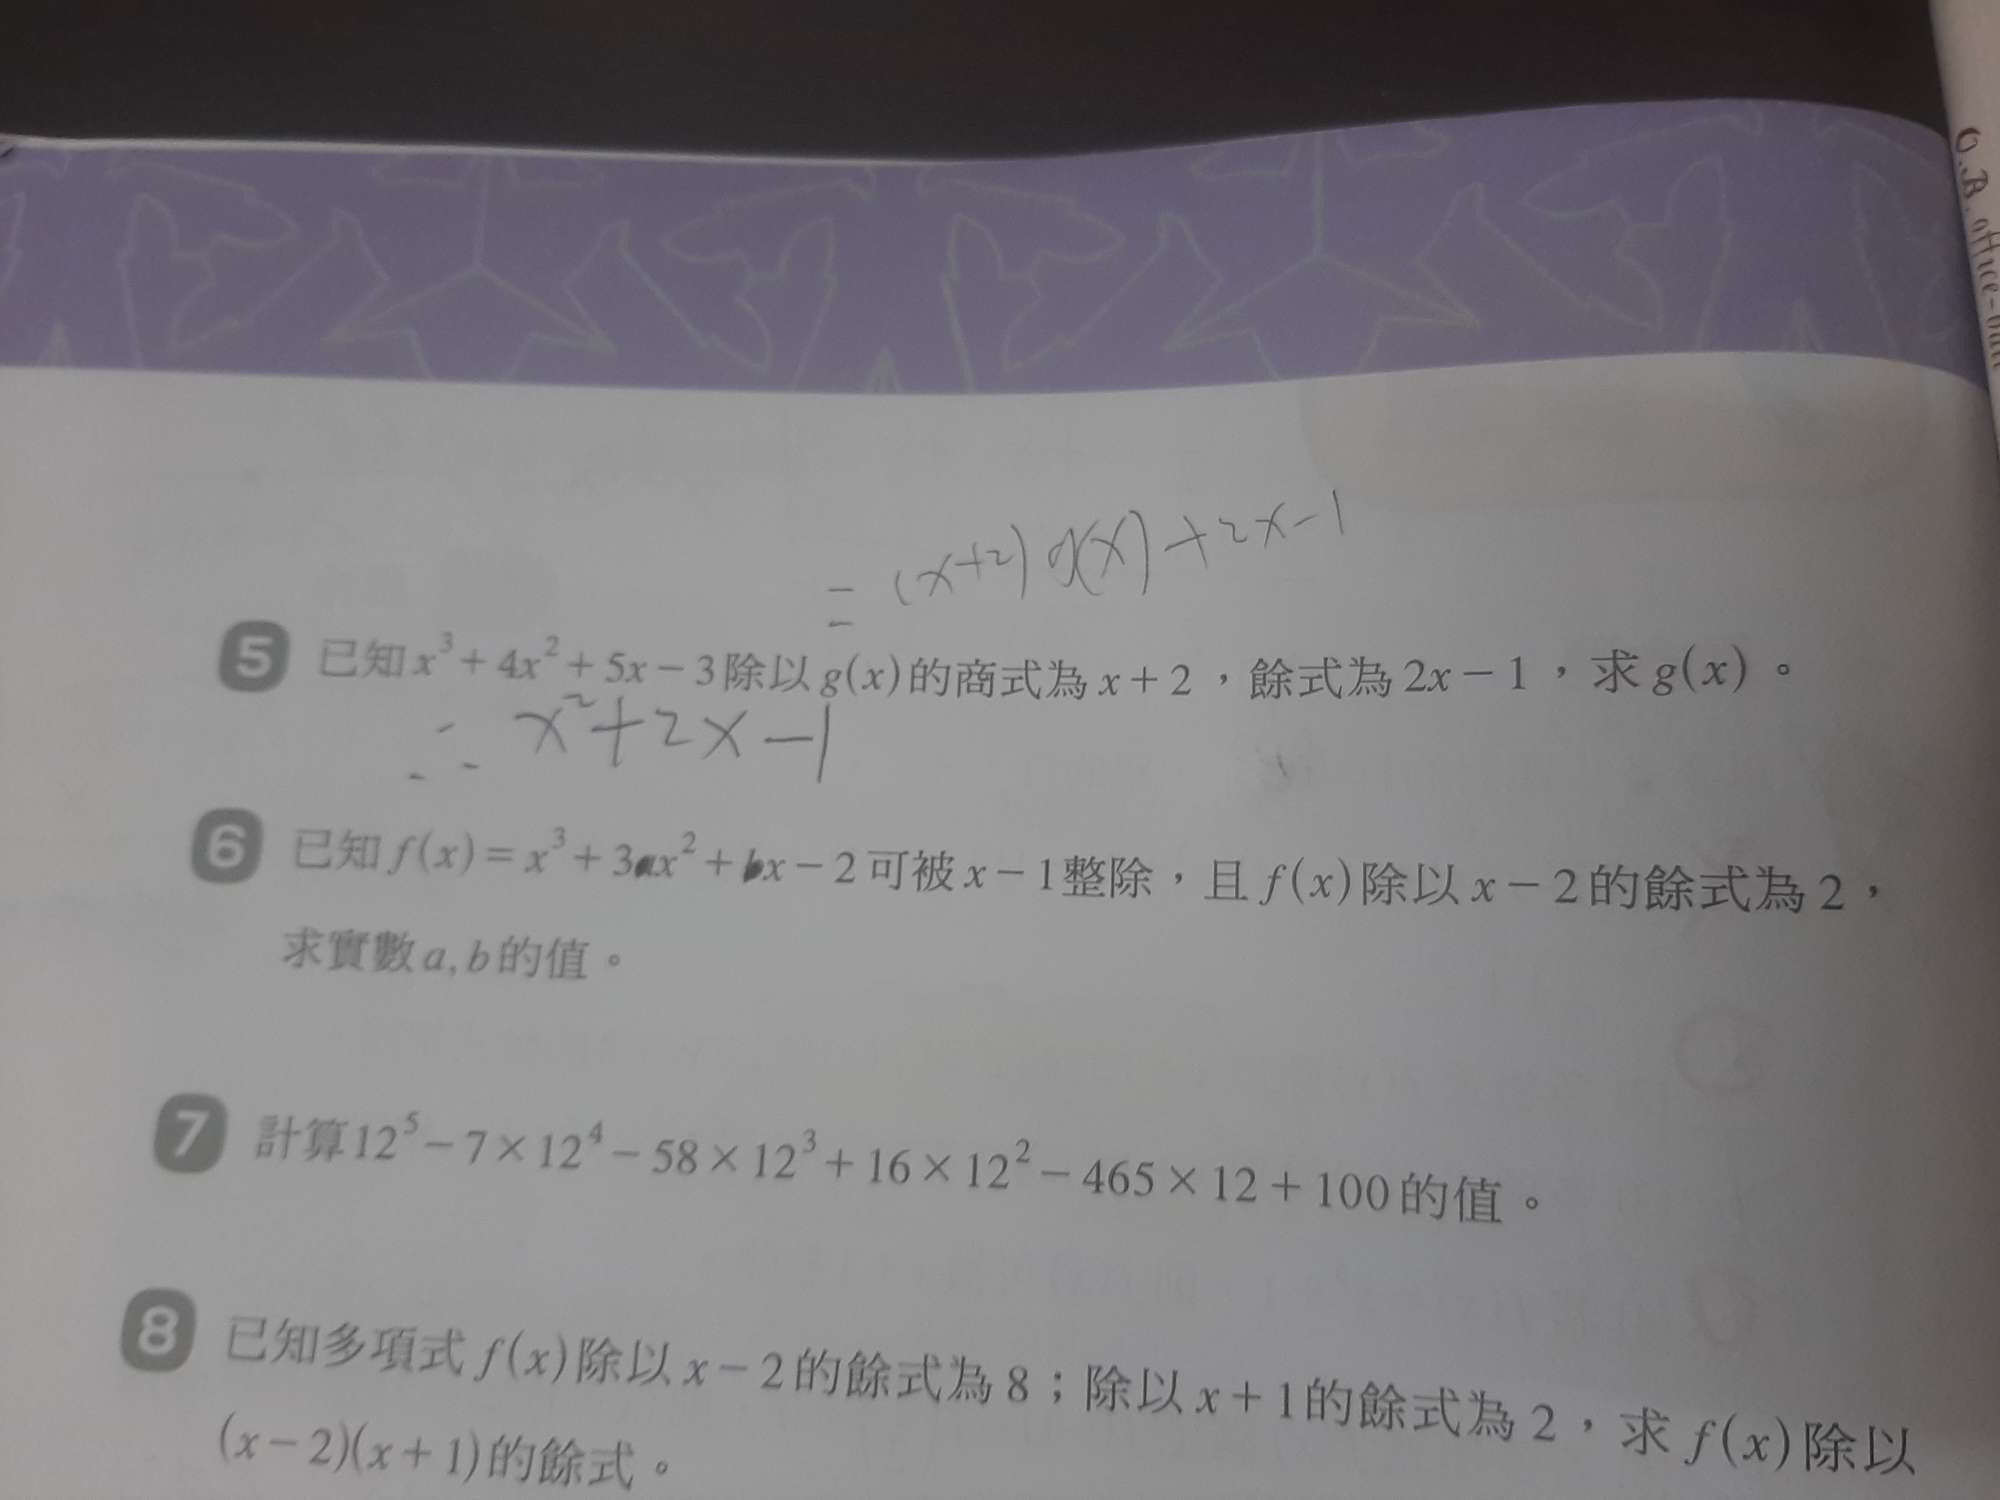 O.B. office-ball
= (x+2) g(x) + 2x - 1
5 已知 x³ + 4x² + 5x - 3 除以 g(x) 的商式為 x + 2,餘式為 2x - 1,求 g(x)。
∴ x² + 2x - 1
6 已知 f(x) = x³ + 3ax² + bx - 2 可被 x - 1 整除,且 f(x) 除以 x - 2 的餘式為 2,
求實數 a, b 的值。
7 計算 12⁵ - 7 × 12⁴ - 58 × 12³ + 16 × 12² - 465 × 12 + 100 的值。
8 已知多項式 f(x) 除以 x - 2 的餘式為 8;除以 x + 1 的餘式為 2,求 f(x) 除以
(x - 2)(x + 1) 的餘式。